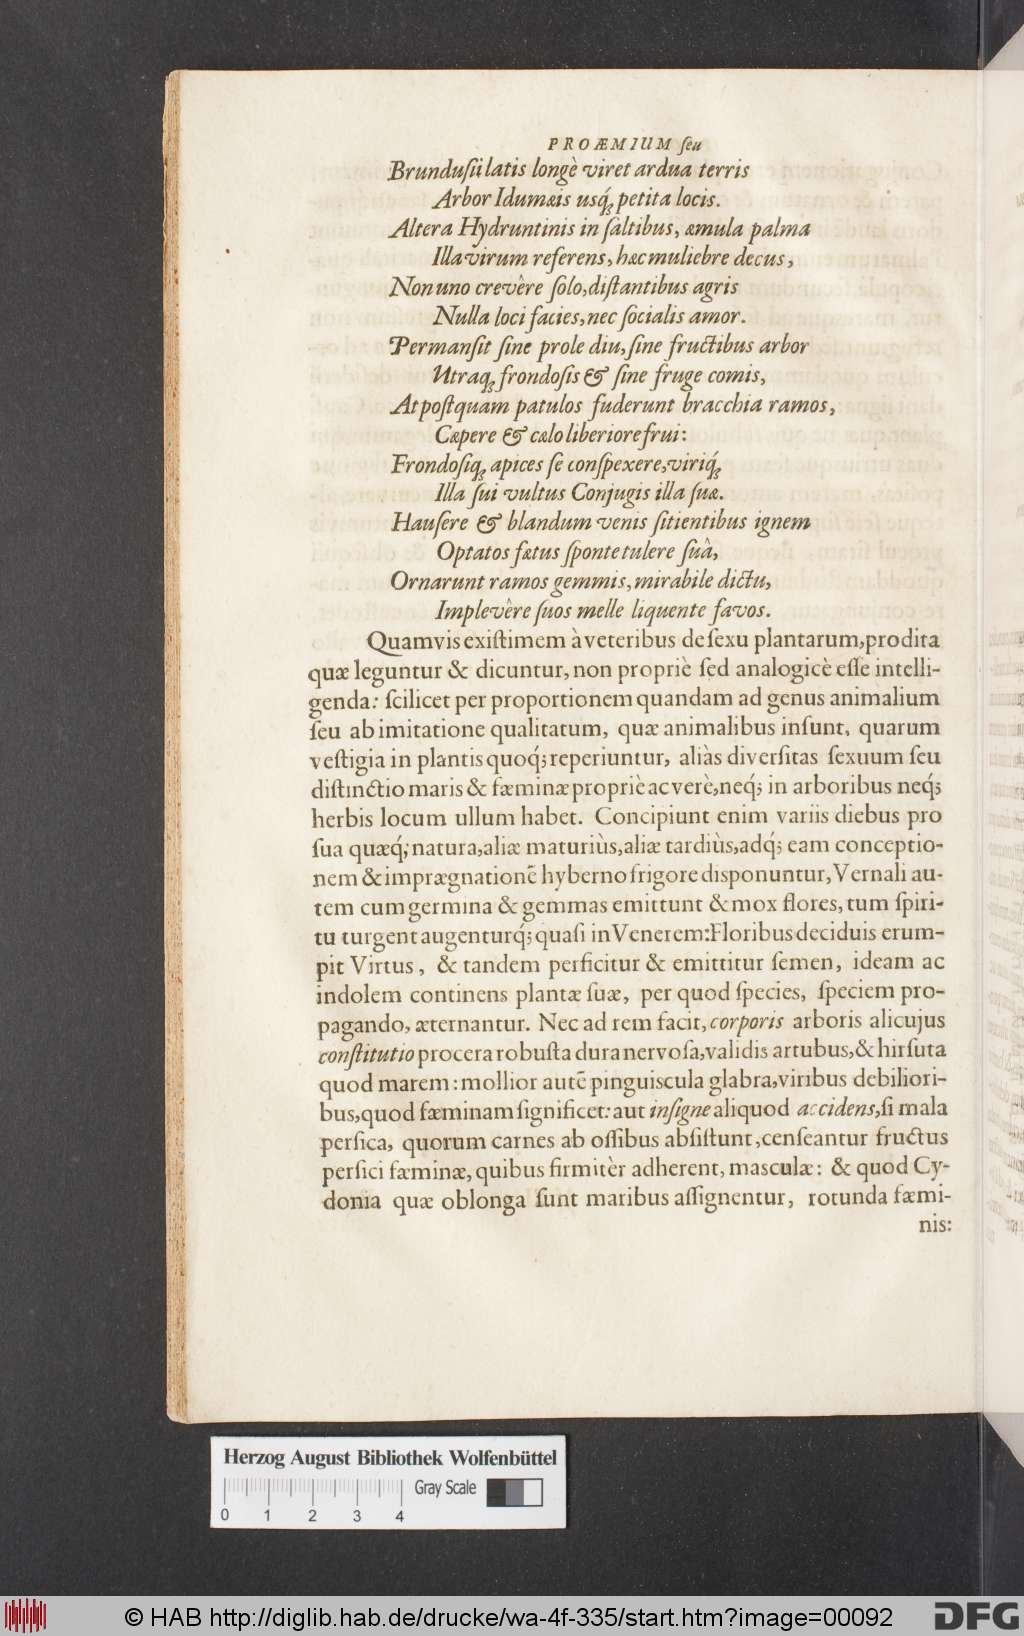 PROÆMIUM ſeu
Brunduſii latis longè viret ardua terris
Arbor Idumæis usq́ꝫ petita locis.
Altera Hydruntinis in ſaltibus, æmula palma
Illa virum referens, hæc muliebre decus,
Non uno crevêre ſolo, diſtantibus agris
Nulla loci facies, nec ſocialis amor.
Permanſit ſine prole diu, ſine fructibus arbor
Utraqꝫ frondoſis & ſine fruge comis,
At poſtquam patulos fuderunt bracchia ramos,
Cæpere & cælo liberiore frui:
Frondoſiqꝫ apices ſe conſpexere, viriq́ꝫ
Illa ſui vultus Conjugis illa ſuæ.
Hauſere & blandum venis ſitientibus ignem
Optatos fætus ſponte tulere ſuâ,
Ornarunt ramos gemmis, mirabile dictu,
Implevêre ſuos melle liquente favos.
Quamvis exiſtimem à veteribus de ſexu plantarum, prodita
quæ leguntur & dicuntur, non propriè ſed analogicè eſſe intelli-
genda: ſcilicet per proportionem quandam ad genus animalium
ſeu ab imitatione qualitatum, quæ animalibus inſunt, quarum
veſtigia in plantis quoq́ꝫ reperiuntur, aliàs diverſitas ſexuum ſeu
diſtinctio maris & fæminæ propriè ac verè, neq́ꝫ in arboribus neq́ꝫ
herbis locum ullum habet. Concipiunt enim variis diebus pro
ſua quæq́ꝫ natura, aliæ maturiùs, aliæ tardiùs, adq́ꝫ eam conceptio-
nem & imprægnationẽ hyberno frigore disponuntur, Vernali au-
tem cum germina & gemmas emittunt & mox flores, tum ſpiri-
tu turgent augenturq́ꝫ quaſi in Venerem: Floribus deciduis erum-
pit Virtus, & tandem perficitur & emittitur ſemen, ideam ac
indolem continens plantæ ſuæ, per quod ſpecies, ſpeciem pro-
pagando, æternantur. Nec ad rem facit, corporis arboris alicujus
conſtitutio procera robuſta dura nervoſa, validis artubus, & hirſuta
quod marem: mollior autẽ pinguiscula glabra, viribus debiliori-
bus, quod fæminam ſignificet: aut inſigne aliquod accidens, ſi mala
perſica, quorum carnes ab oſſibus abſiſtunt, cenſeantur fructus
perſici fæminæ, quibus firmitèr adherent, masculæ: & quod Cy-
donia quæ oblonga ſunt maribus aſſignentur, rotunda fæmi-
nis:
Herzog August Bibliothek Wolfenbüttel
Gray Scale
0 1 2 3 4
© HAB http://diglib.hab.de/drucke/wa-4f-335/start.htm?image=00092
DFG